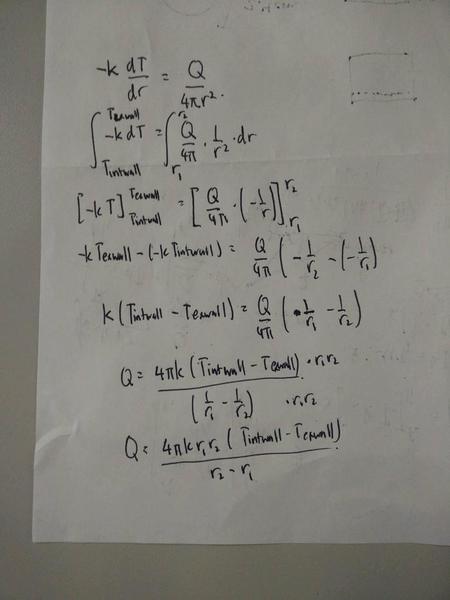 -k dT/dr = Q/4πr².
∫_{Tintwall}^{Texwall} -k dT = ∫_{r₁}^{r₂} Q/4π · 1/r² · dr
[-kT]_{Tintwall}^{Texwall} = [Q/4π · (-1/r)]_{r₁}^{r₂}
-kTexwall - (-kTintwall) = Q/4π (-1/r₂ - (-1/r₁)
k(Tintwall - Texwall) = Q/4π (1/r₁ - 1/r₂)
Q = 4πk (Tintwall - Texwall) · r₁r₂ / (1/r₁ - 1/r₂) · r₁r₂
Q = 4πkr₁r₂ (Tintwall - Texwall) / r₂ - r₁